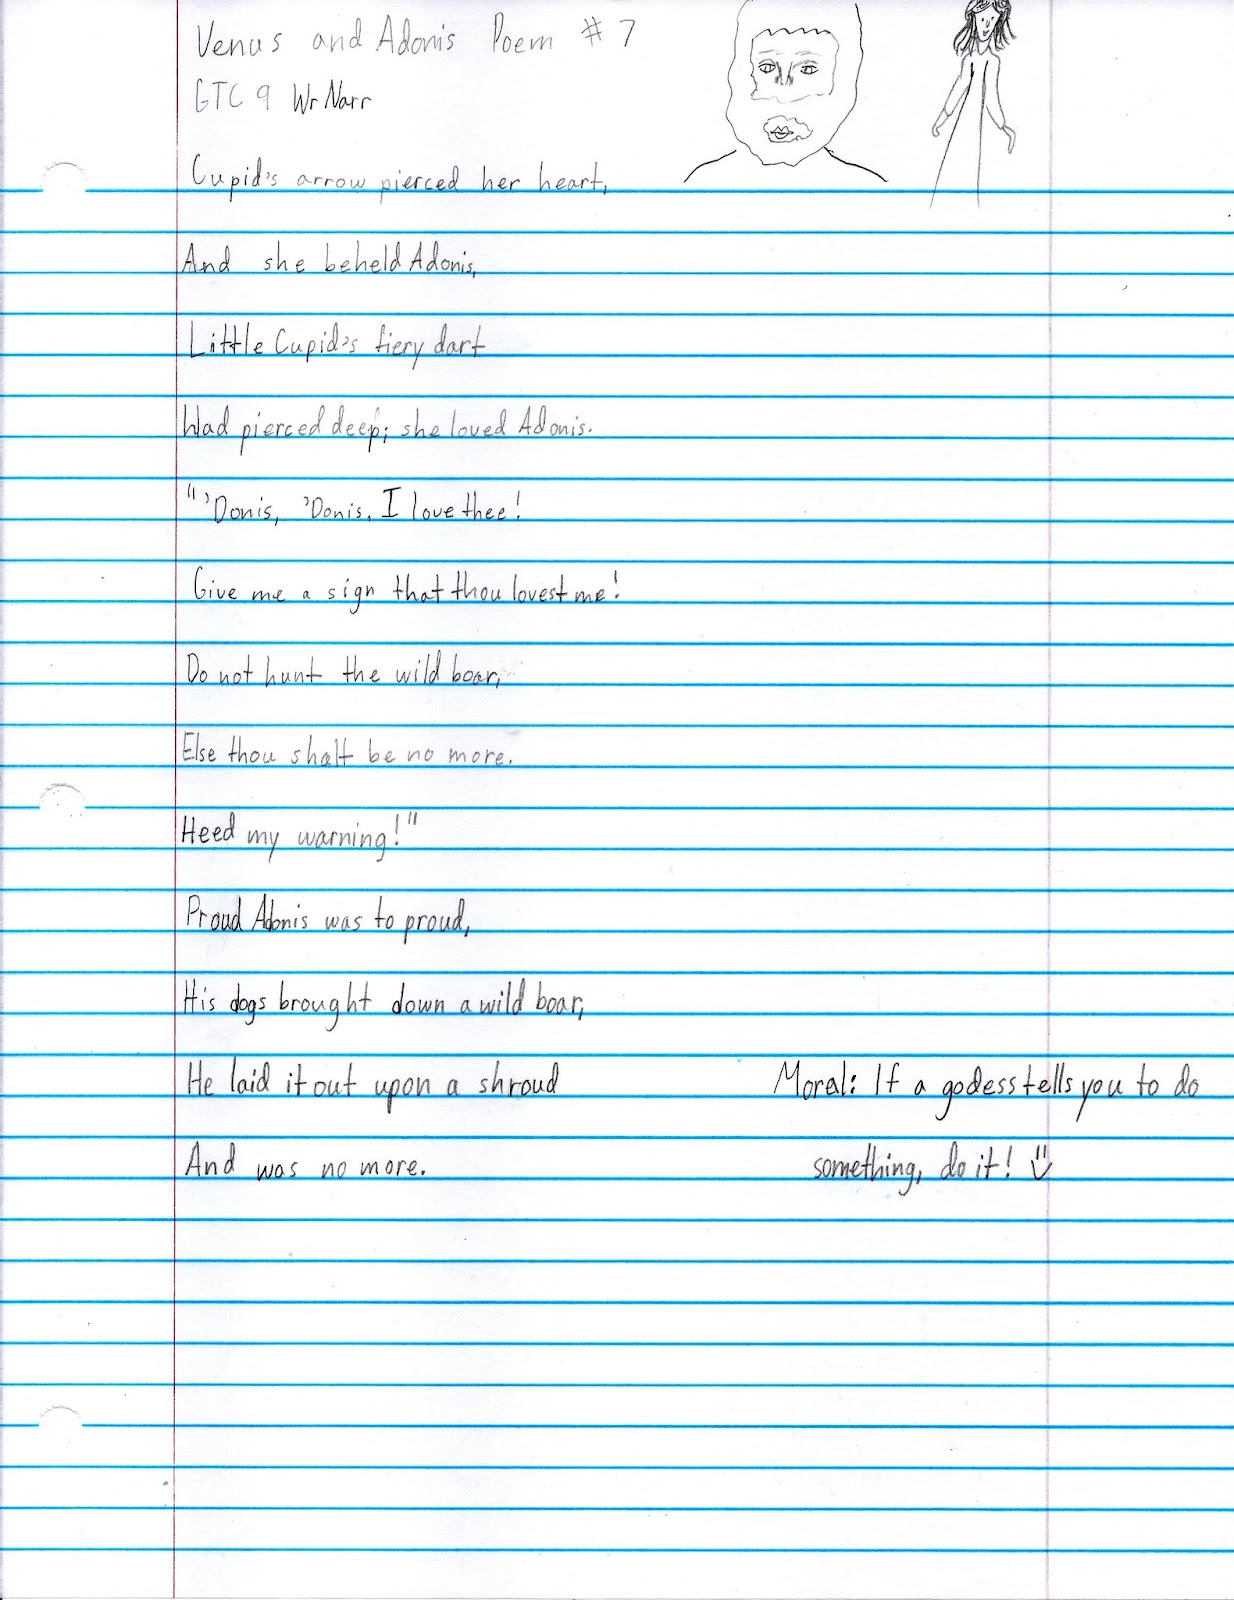 Venus and Adonis Poem # 7
GTC 9 Wr Narr
Cupid's arrow pierced her heart,
And she beheld Adonis,
Little Cupid's fiery dart
Had pierced deep; she loved Adonis.
"'Donis, 'Donis, I love thee!
Give me a sign that thou lovest me!
Do not hunt the wild boar,
Else thou shalt be no more.
Heed my warning!"
Proud Adonis was to proud,
His dogs brought down a wild boar,
He laid it out upon a shroud
And was no more.
Moral: If a godess tells you to do
something, do it!